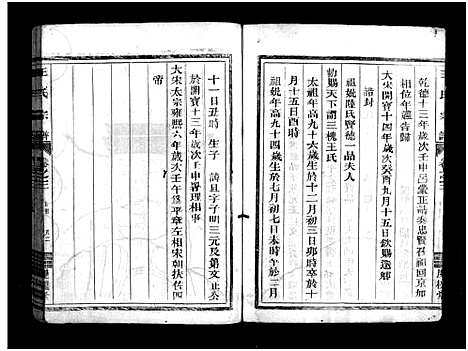 王氏宗譜
乾德十三年歲次壬申呂蒙正誥奏忠賢召祖回京加
相位年邁告歸
大宋開寶十四年歲次癸酉九月十五日欽賜還鄉
誥封
祖妣陸氏賢德一品夫人
勅賜天下謂三槐王氏
太祖年高九十六歲生於十二月初三日卯時卒於十
月十五日酉時
祖妣年高九十四歲生於七月初七日未時卒於二月
十一日丑時 生子 諱旦字子明三元及第文正公
於開寶十三年歲次壬申署理相事
大宋太宗雍熙六年歲次壬午為平章左相宋朝扶佐四
帝
王氏宗譜